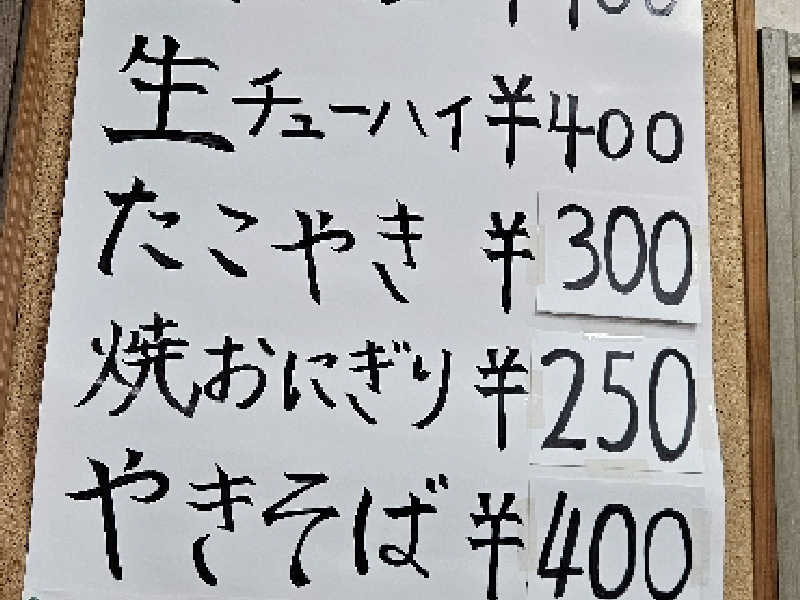 生チューハイ ¥400
たこやき ¥300
焼おにぎり ¥250
やきそば ¥400